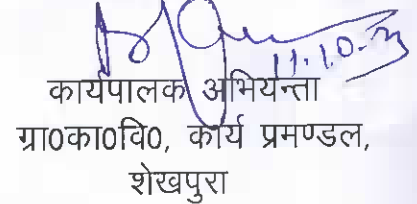 11.10.23
कार्यपालक अभियन्ता
ग्रा0का0वि0, कार्य प्रमण्डल,
शेखपुरा